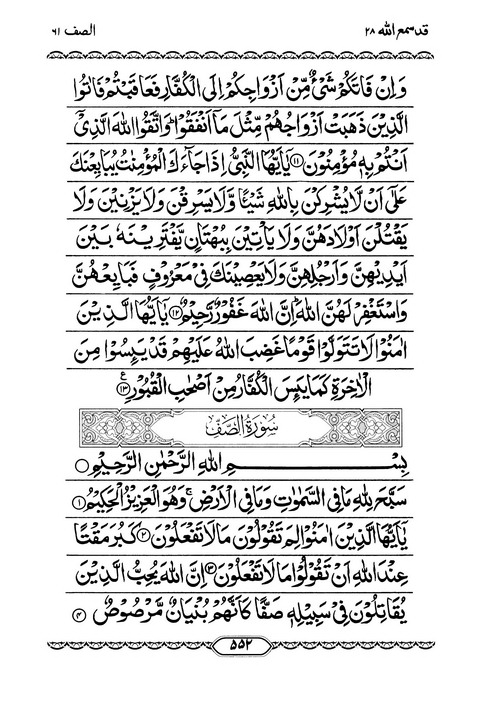 قد سمع الله ۲۸
الصف ۶۱
وَاِنْ فَاتَكُمْ شَىْءٌ مِّنْ اَزْوَاجِكُمْ اِلَى الْكُفَّارِ فَعَاقَبْتُمْ فَاٰتُوا
الَّذِيْنَ ذَهَبَتْ اَزْوَاجُهُمْ مِّثْلَ مَاۤ اَنْفَقُوْا ؕ وَاتَّقُوا اللّٰهَ الَّذِىْۤ
اَنْتُمْ بِهٖ مُؤْمِنُوْنَ ۝۱۱ يٰۤاَيُّهَا النَّبِىُّ اِذَا جَآءَكَ الْمُؤْمِنٰتُ يُبَايِعْنَكَ
عَلٰٓى اَنْ لَّا يُشْرِكْنَ بِاللّٰهِ شَيْـًٔا وَّلَا يَسْرِقْنَ وَلَا يَزْنِيْنَ وَلَا
يَقْتُلْنَ اَوْلَادَهُنَّ وَلَا يَاْتِيْنَ بِبُهْتَانٍ يَّفْتَرِيْنَهٗ بَيْنَ
اَيْدِيْهِنَّ وَاَرْجُلِهِنَّ وَلَا يَعْصِيْنَكَ فِىْ مَعْرُوْفٍ فَبَايِعْهُنَّ
وَاسْتَغْفِرْ لَهُنَّ اللّٰهَ ؕ اِنَّ اللّٰهَ غَفُوْرٌ رَّحِيْمٌ ۝۱۲ يٰۤاَيُّهَا الَّذِيْنَ
اٰمَنُوْا لَا تَتَوَلَّوْا قَوْمًا غَضِبَ اللّٰهُ عَلَيْهِمْ قَدْ يَئِسُوْا مِنَ
الْاٰخِرَةِ كَمَا يَئِسَ الْكُفَّارُ مِنْ اَصْحٰبِ الْقُبُوْرِ ۝۱۳ ع
سُوْرَةُ الصَّفِّ
بِسْمِ اللّٰهِ الرَّحْمٰنِ الرَّحِيْمِ ۝
سَبَّحَ لِلّٰهِ مَا فِى السَّمٰوٰتِ وَمَا فِى الْاَرْضِ ۚ وَهُوَ الْعَزِيْزُ الْحَكِيْمُ ۝۱
يٰۤاَيُّهَا الَّذِيْنَ اٰمَنُوْا لِمَ تَقُوْلُوْنَ مَا لَا تَفْعَلُوْنَ ۝۲ كَبُرَ مَقْتًا
عِنْدَ اللّٰهِ اَنْ تَقُوْلُوْا مَا لَا تَفْعَلُوْنَ ۝۳ اِنَّ اللّٰهَ يُحِبُّ الَّذِيْنَ
يُقَاتِلُوْنَ فِىْ سَبِيْلِهٖ صَفًّا كَاَنَّهُمْ بُنْيَانٌ مَّرْصُوْصٌ ۝۴
۵۵۲